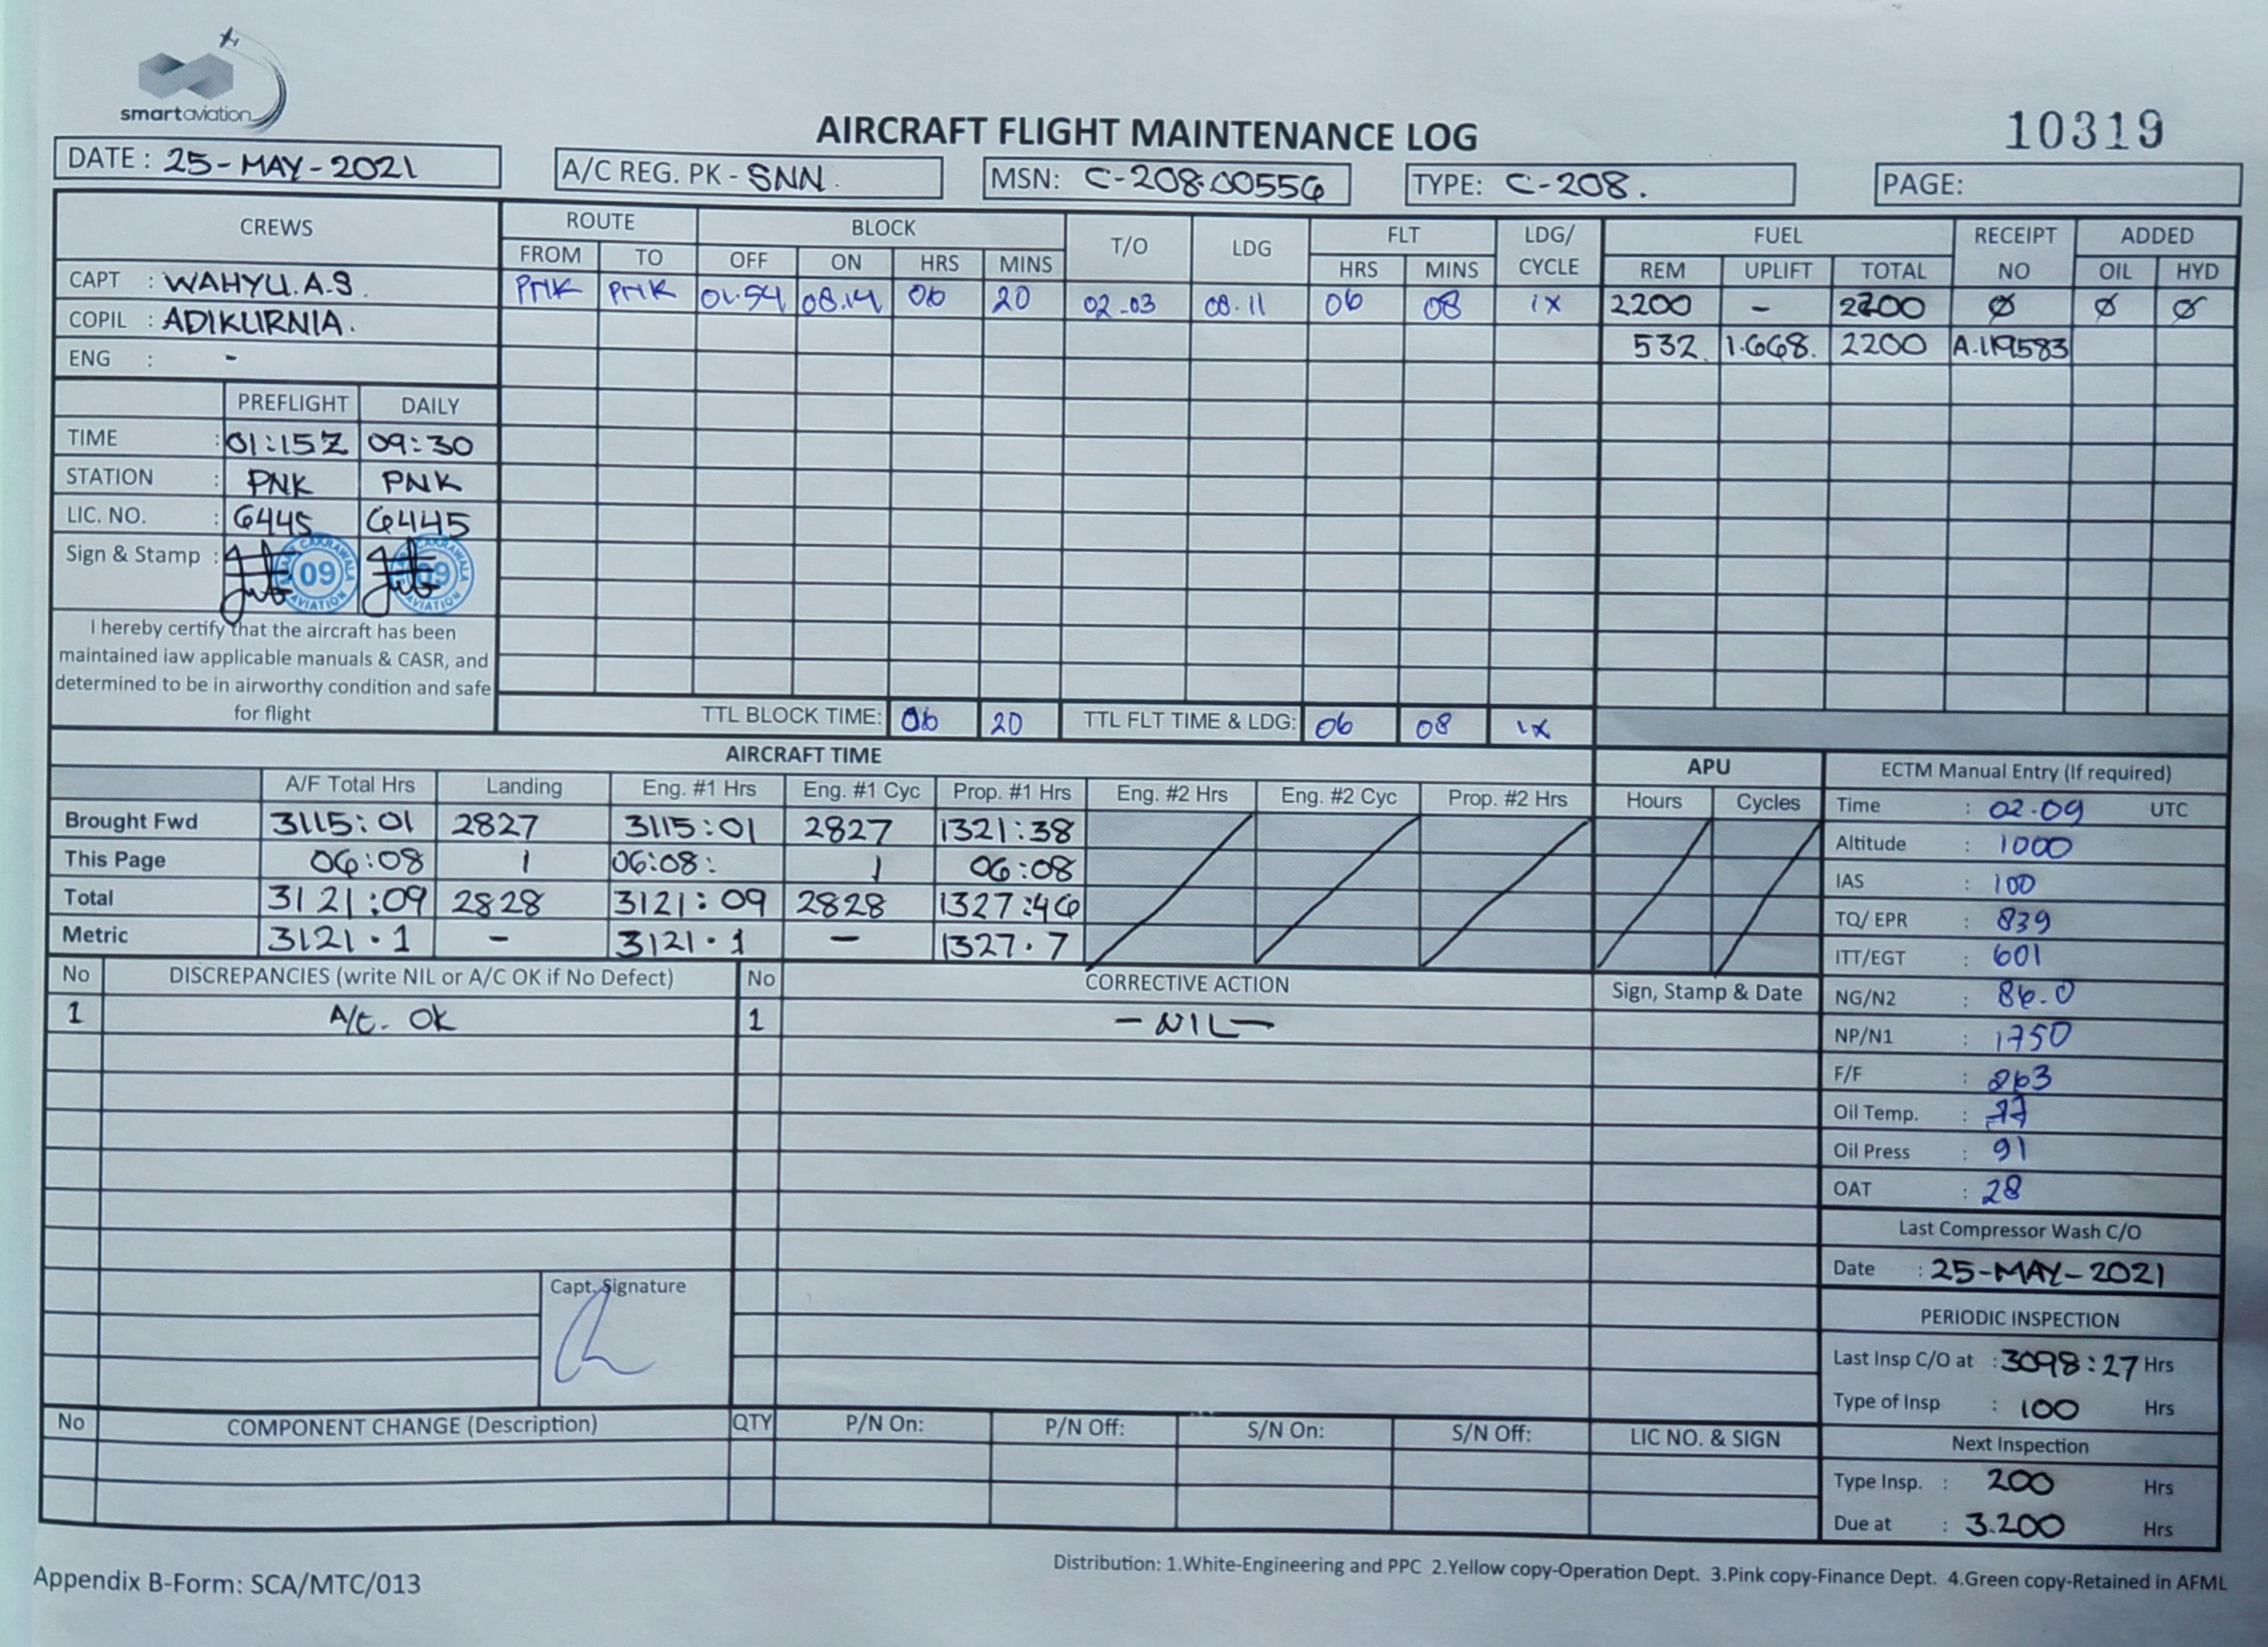 smartaviation
AIRCRAFT FLIGHT MAINTENANCE LOG
10319
DATE : 25-MAY-2021
A/C REG. PK - SNN.
MSN: C-208.00556
TYPE: C-208.
PAGE:
CREWS
ROUTE BLOCK T/O LDG FLT LDG/ CYCLE FUEL RECEIPT NO ADDED
FROM TO OFF ON HRS MINS HRS MINS REM UPLIFT TOTAL OIL HYD
CAPT : WAHYU.A.S.
PNK PNK 01.54 08.14 06 20 02.03 08.11 06 08 1X 2200 - 2200 Ø Ø Ø
COPIL : ADIKURNIA.
532. 1.668. 2200 A.119583
ENG : -
PREFLIGHT DAILY
TIME : 01:15Z 09:30
STATION : PNK PNK
LIC. NO. : 6445 6445
Sign & Stamp :
CAKRAWALA 09 AVIATION
CAKRAWALA 09 AVIATION
I hereby certify that the aircraft has been
maintained iaw applicable manuals & CASR, and
determined to be in airworthy condition and safe
for flight
TTL BLOCK TIME: 06 20 TTL FLT TIME & LDG: 06 08 1X
AIRCRAFT TIME
APU
A/F Total Hrs Landing Eng. #1 Hrs Eng. #1 Cyc Prop. #1 Hrs Eng. #2 Hrs Eng. #2 Cyc Prop. #2 Hrs Hours Cycles
Brought Fwd 3115:01 2827 3115:01 2827 1321:38
This Page 06:08 1 06:08: 1 06:08
Total 3121:09 2828 3121:09 2828 1327:46
Metric 3121.1 - 3121.1 - 1327.7
ECTM Manual Entry (If required)
Time : 02.09 UTC
Altitude : 1000
IAS : 100
TQ/ EPR : 839
ITT/EGT : 601
NG/N2 : 86.0
NP/N1 : 1750
F/F : 263
Oil Temp. : 77
Oil Press : 91
OAT : 28
Last Compressor Wash C/O
Date : 25-MAY-2021
PERIODIC INSPECTION
Last Insp C/O at : 3098:27 Hrs
Type of Insp : 100 Hrs
Next Inspection
Type Insp. : 200 Hrs
Due at : 3.200 Hrs
No DISCREPANCIES (write NIL or A/C OK if No Defect) No CORRECTIVE ACTION Sign, Stamp & Date
1 A/C. OK 1 -NIL-
Capt. Signature
No COMPONENT CHANGE (Description) QTY P/N On: P/N Off: S/N On: S/N Off: LIC NO. & SIGN
Distribution: 1.White-Engineering and PPC 2.Yellow copy-Operation Dept. 3.Pink copy-Finance Dept. 4.Green copy-Retained in AFML
Appendix B-Form: SCA/MTC/013